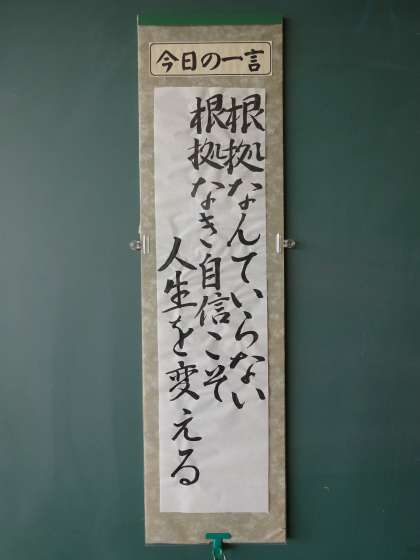 今日の一言
根拠なんていらない
根拠なき自信こそ
人生を変える